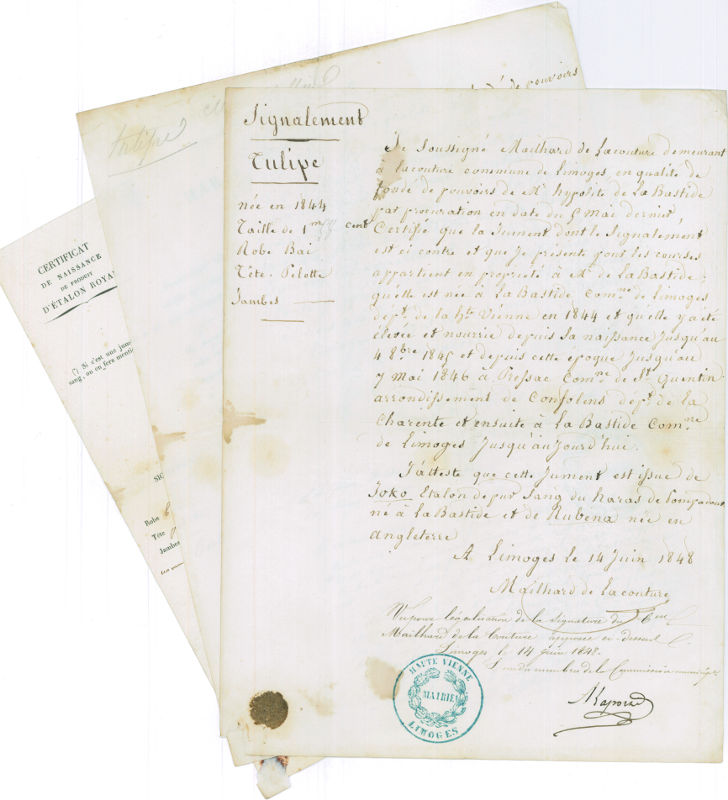 Tulipe
de pouvoirs
CERTIFICAT
DE NAISSANCE
DE PRODUIT
D'ÉTALON ROYAL
Si c'est une jume
sang, on en fera mentio
SIG
Robe
Tête
Jambes
Signalement
Tulipe
née en 1844
Taille de 1 m cent
Robe Bai
Tête Pelotte
Jambes
Je soussigné Mailhard de Lacouture demeurant
à Lacouture commune de Limoges, en qualité de
fondé de pouvoirs de Mr hypolite de La Bastide
par procuration en date du Mai dernier,
Certifie que la jument dont le signalement
est ci contre et que je présente pour les courses
appartient en propriété à Mr de La Bastide
qu'elle est née à La Bastide Comne de limoges
dépt. de la hte Vienne en 1844 et qu'elle y a été
élevée et nourrie depuis sa naissance jusqu'au
4 8bre 1845 et depuis cette époque jusqu'au
7 Mai 1846 à Pressac Comne de St Quentin
arrondissement de Confolens dépt. de la
Charente et ensuite à La Bastide Comne
de Limoges jusqu'au jourd'hui.
J'atteste que cette jument est issue de
Joko Etalon de pur sang du haras de Pompadour
né à la Bastide et de Rubena née en
angleterre
A Limoges le 14 Juin 1848
Mailhard de Lacouture
Vu pour légalisation de la signature du Cen
Mailhard de la Couture apposée ci-dessus
Limoges le 14 juin 1848.
L'un des membres de la Commission municipale
HAUTE VIENNE
MAIRIE
LIMOGES